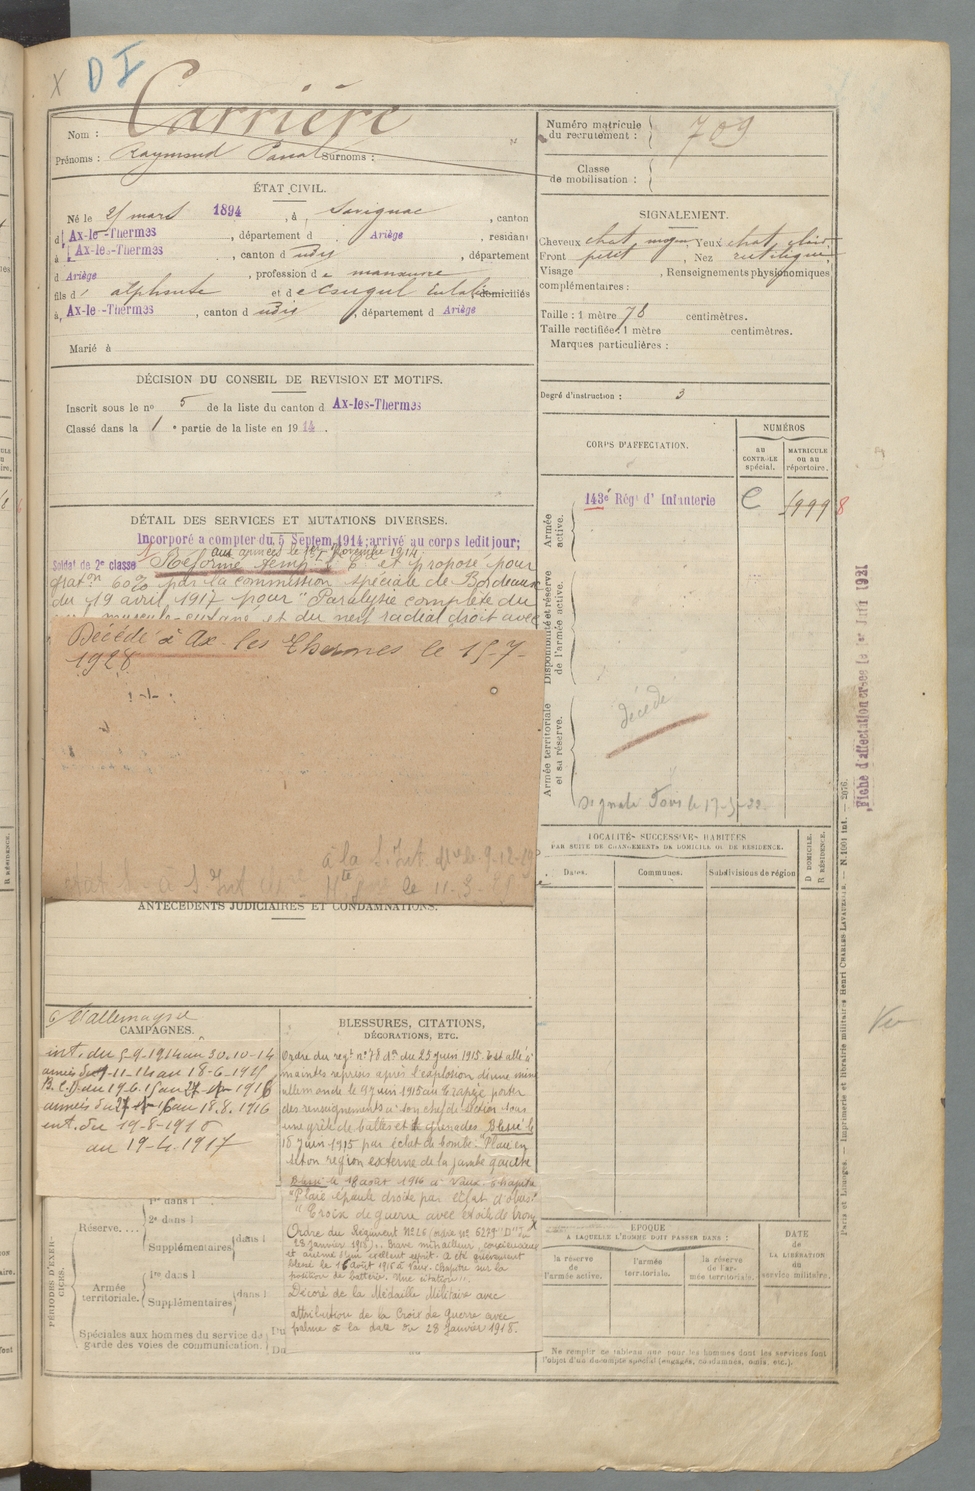 X D I
Nom : Carrière
Prénoms : Raymond Surnoms :
Numéro matricule
du recrutement : 709
Classe
de mobilisation :
ÉTAT CIVIL.
Né le mars 1894, à Savignac, canton
d Ax-les-Thermes, département d Ariège, résidant
à Ax-les-Thermes, canton d udis, département
d Ariège, profession de manœuvre
fils d' alphonse et de domiciliés
à Ax-les-Thermes, canton d udis, département d Ariège
Marié à
SIGNALEMENT.
Cheveux chat. moyen, Yeux chat. clair
Front petit, Nez rectiligne
Visage , Renseignements physionomiques
complémentaires :
Taille : 1 mètre 78 centimètres.
Taille rectifiée : 1 mètre centimètres.
Marques particulières :
Degré d'instruction : 3
DÉCISION DU CONSEIL DE REVISION ET MOTIFS.
Inscrit sous le no 5 de la liste du canton d Ax-les-Thermes
Classé dans la 1 e partie de la liste en 1914.
DÉTAIL DES SERVICES ET MUTATIONS DIVERSES.
Incorporé à compter du 5 Septem. 1914; arrivé au corps ledit jour;
aux armées le Novembre 1914.
Soldat de 2e classe Réformé temp. et proposé pour
grat.on 60% par la commission spéciale de Bordeaux
du 19 avril 1917 pour "Paralysie complète du
musculo-cutané et du nerf radial droit avec
Décédé à Ax les Thermes le 15-7-
1928
à la S. Int. le 9-12-19
à S. Int. le 11-3-
CORPS D'AFFECTATION.
NUMÉROS
au
CONTRÔLE
spécial.
MATRICULE
ou au
répertoire.
Armée
active.
143e Régt d'Infanterie C 9998
Disponibilité et réserve
de l'armée active.
Armée territoriale
et sa réserve.
décédé
Signalé le 17-
Fiche d'affectation versée le 1er Juin 1921
LOCALITÉS SUCCESSIVES HABITÉES
PAR SUITE DE CHANGEMENTS DE DOMICILE OU DE RÉSIDENCE.
Dates. Communes. Subdivisions de région
D DOMICILE.
R RÉSIDENCE.
ANTÉCÉDENTS JUDICIAIRES ET CONDAMNATIONS.
C/ l'allemagne
CAMPAGNES.
int. du 5-9-1914 au 30.10-14
armées du 1-11-14 au 18-6-1915
B.C.D du 19.6.15 au 27 1916
armées du 27 16 au 18.8.1916
int. du 19-8-1916
au 19-4-1917
BLESSURES, CITATIONS,
DÉCORATIONS, ETC.
Ordre du regt no 78 du 25 juin 1915. Est allé à
maintes reprises après l'explosion d'une mine
allemande le 7 juin 1915 au Trapèze porter
des renseignements à son chef de section sous
une grêle de balles et de grenades. Blessé le
18 juin 1915 par éclat de bombe. "Plaie en
séton region externe de la jambe gauche
Blessé le 18 août 1916 à Vaux-Chapitre
"Plaie épaule droite par éclat d'obus"
"Croix de guerre avec étoile de bronze
Ordre du Régiment
28 janvier 1918). Brave mitrailleur, consciencieux
et animé d'un excellent esprit. A été grièvement
blessé le 18 août 1916 à Vaux-Chapitre sur la
position de batterie. Une citation".
Décoré de la Médaille Militaire avec
attribution de la Croix de Guerre avec
palme à la date du 28 janvier 1918.
PÉRIODES D'EXERCICES.
Réserve....
1re dans l
2e dans l
Supplémentaires dans l
Armée
territoriale.
1re dans l
Supplémentaires dans l
Spéciales aux hommes du service de
garde des voies de communication.
Du
Du au
ÉPOQUE
A LAQUELLE L'HOMME DOIT PASSER DANS :
la réserve
de
l'armée active.
l'armée
territoriale.
la réserve
de l'armée territoriale.
DATE
de
LA LIBÉRATION
du
service militaire.
Ne remplir ce tableau que pour les hommes dont les services font
l'objet d'un décompte spécial (engagés, condamnés, omis, etc.).
Paris et Limoges. — Imprimerie et librairie militaires Henri CHARLES-LAVAUZELLE. — N. 1061 int. — 2076.
Vu